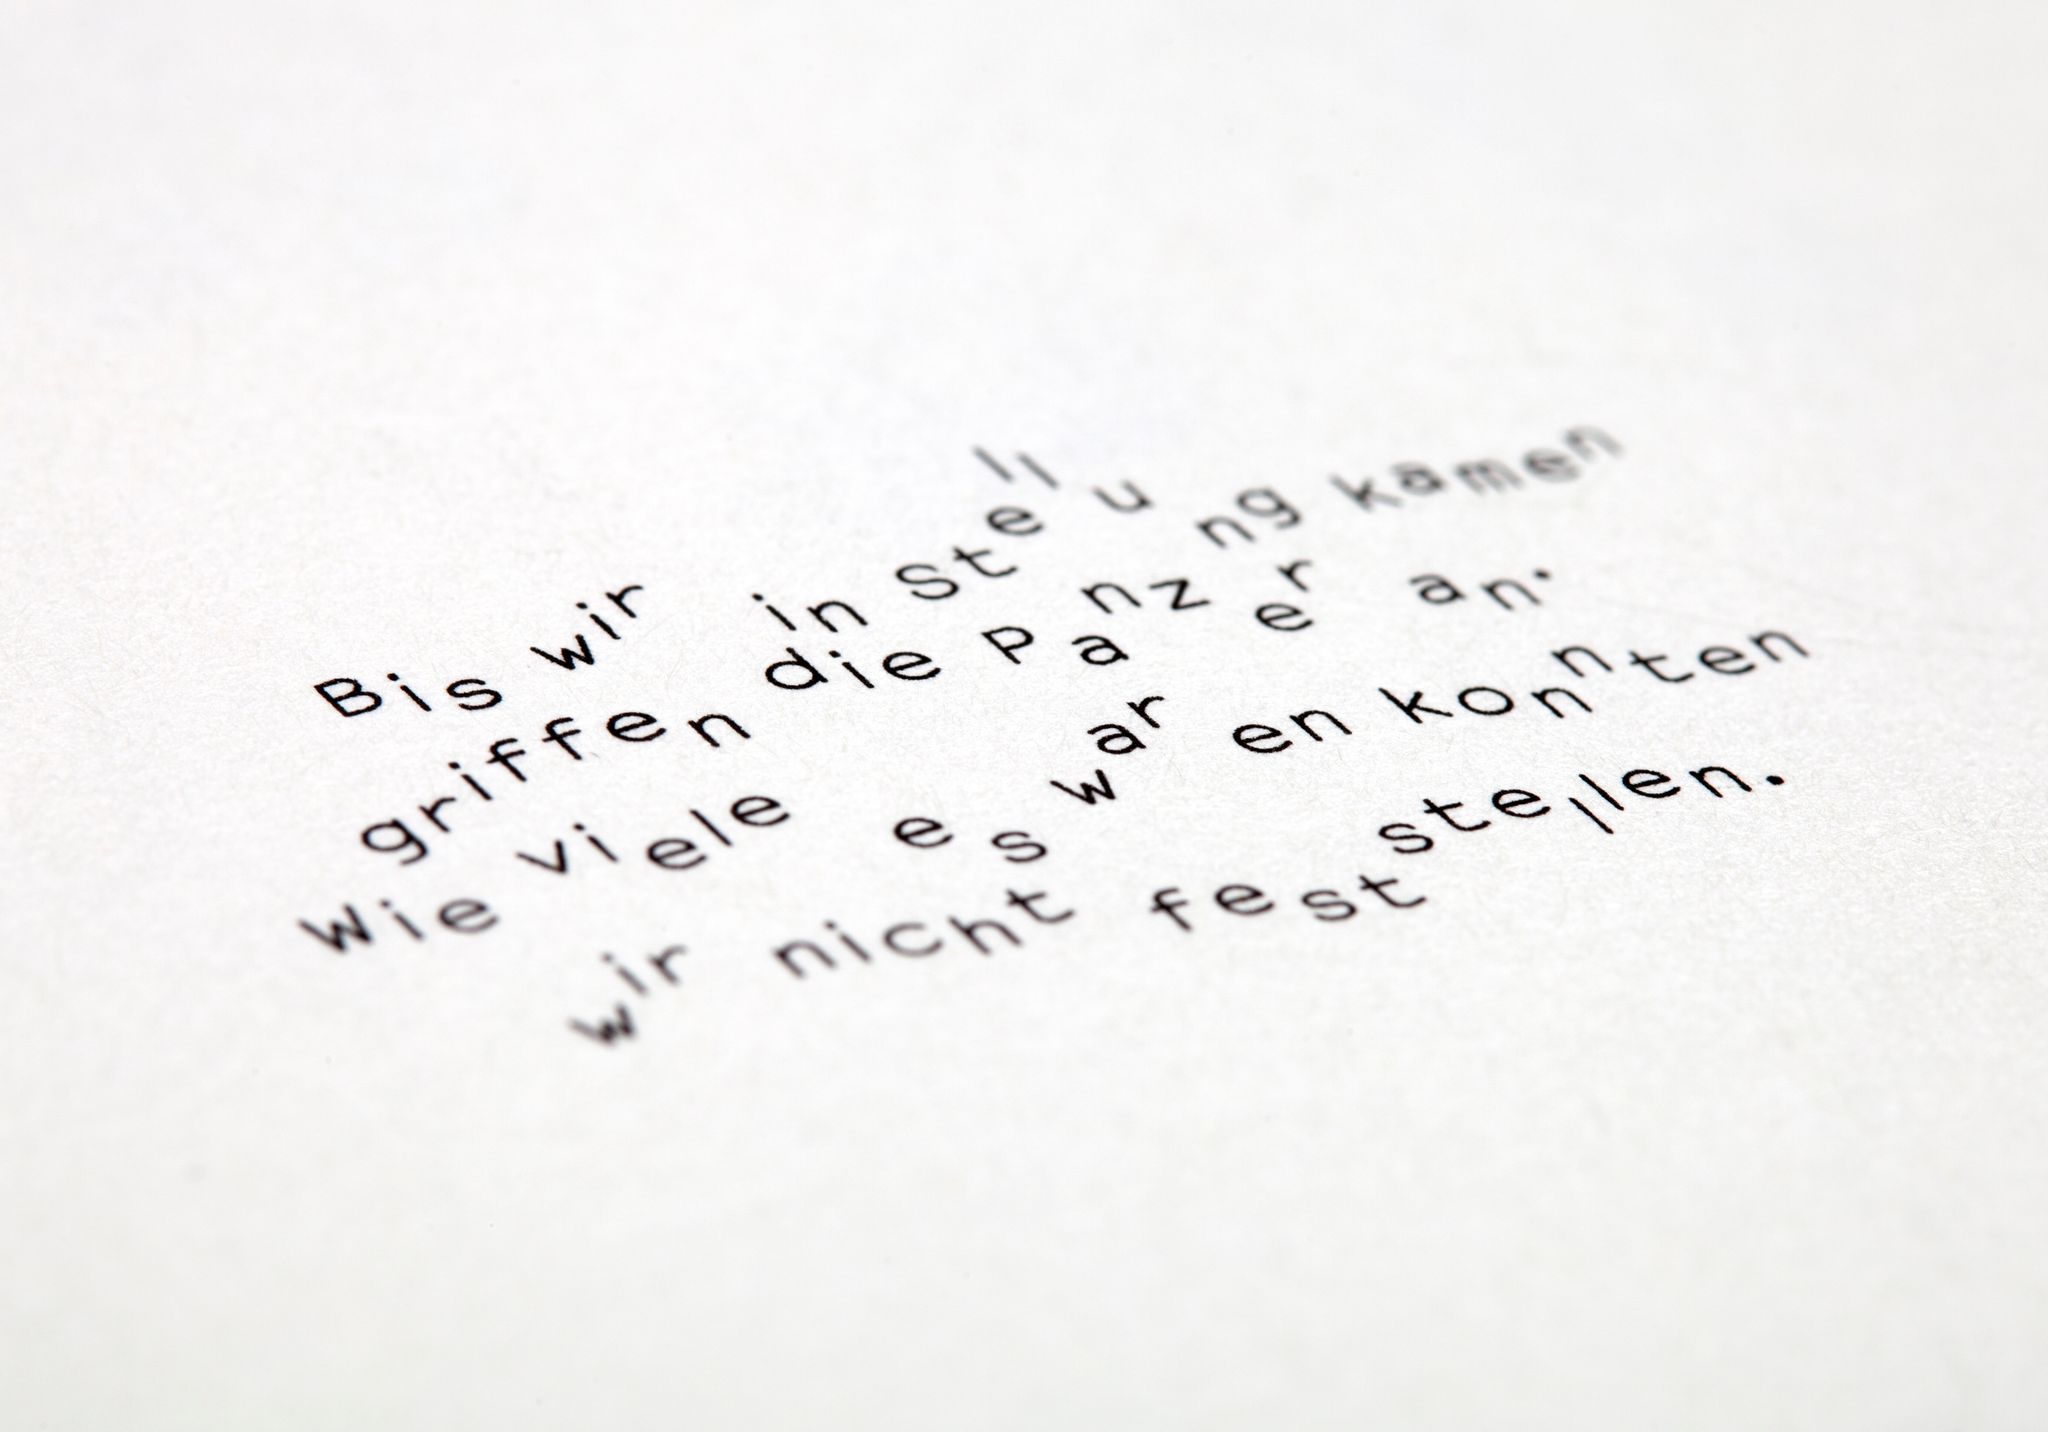 Bis wir in Stellung kamen
griffen die Panzer an.
Wie viele es waren konnten
wir nicht feststellen.